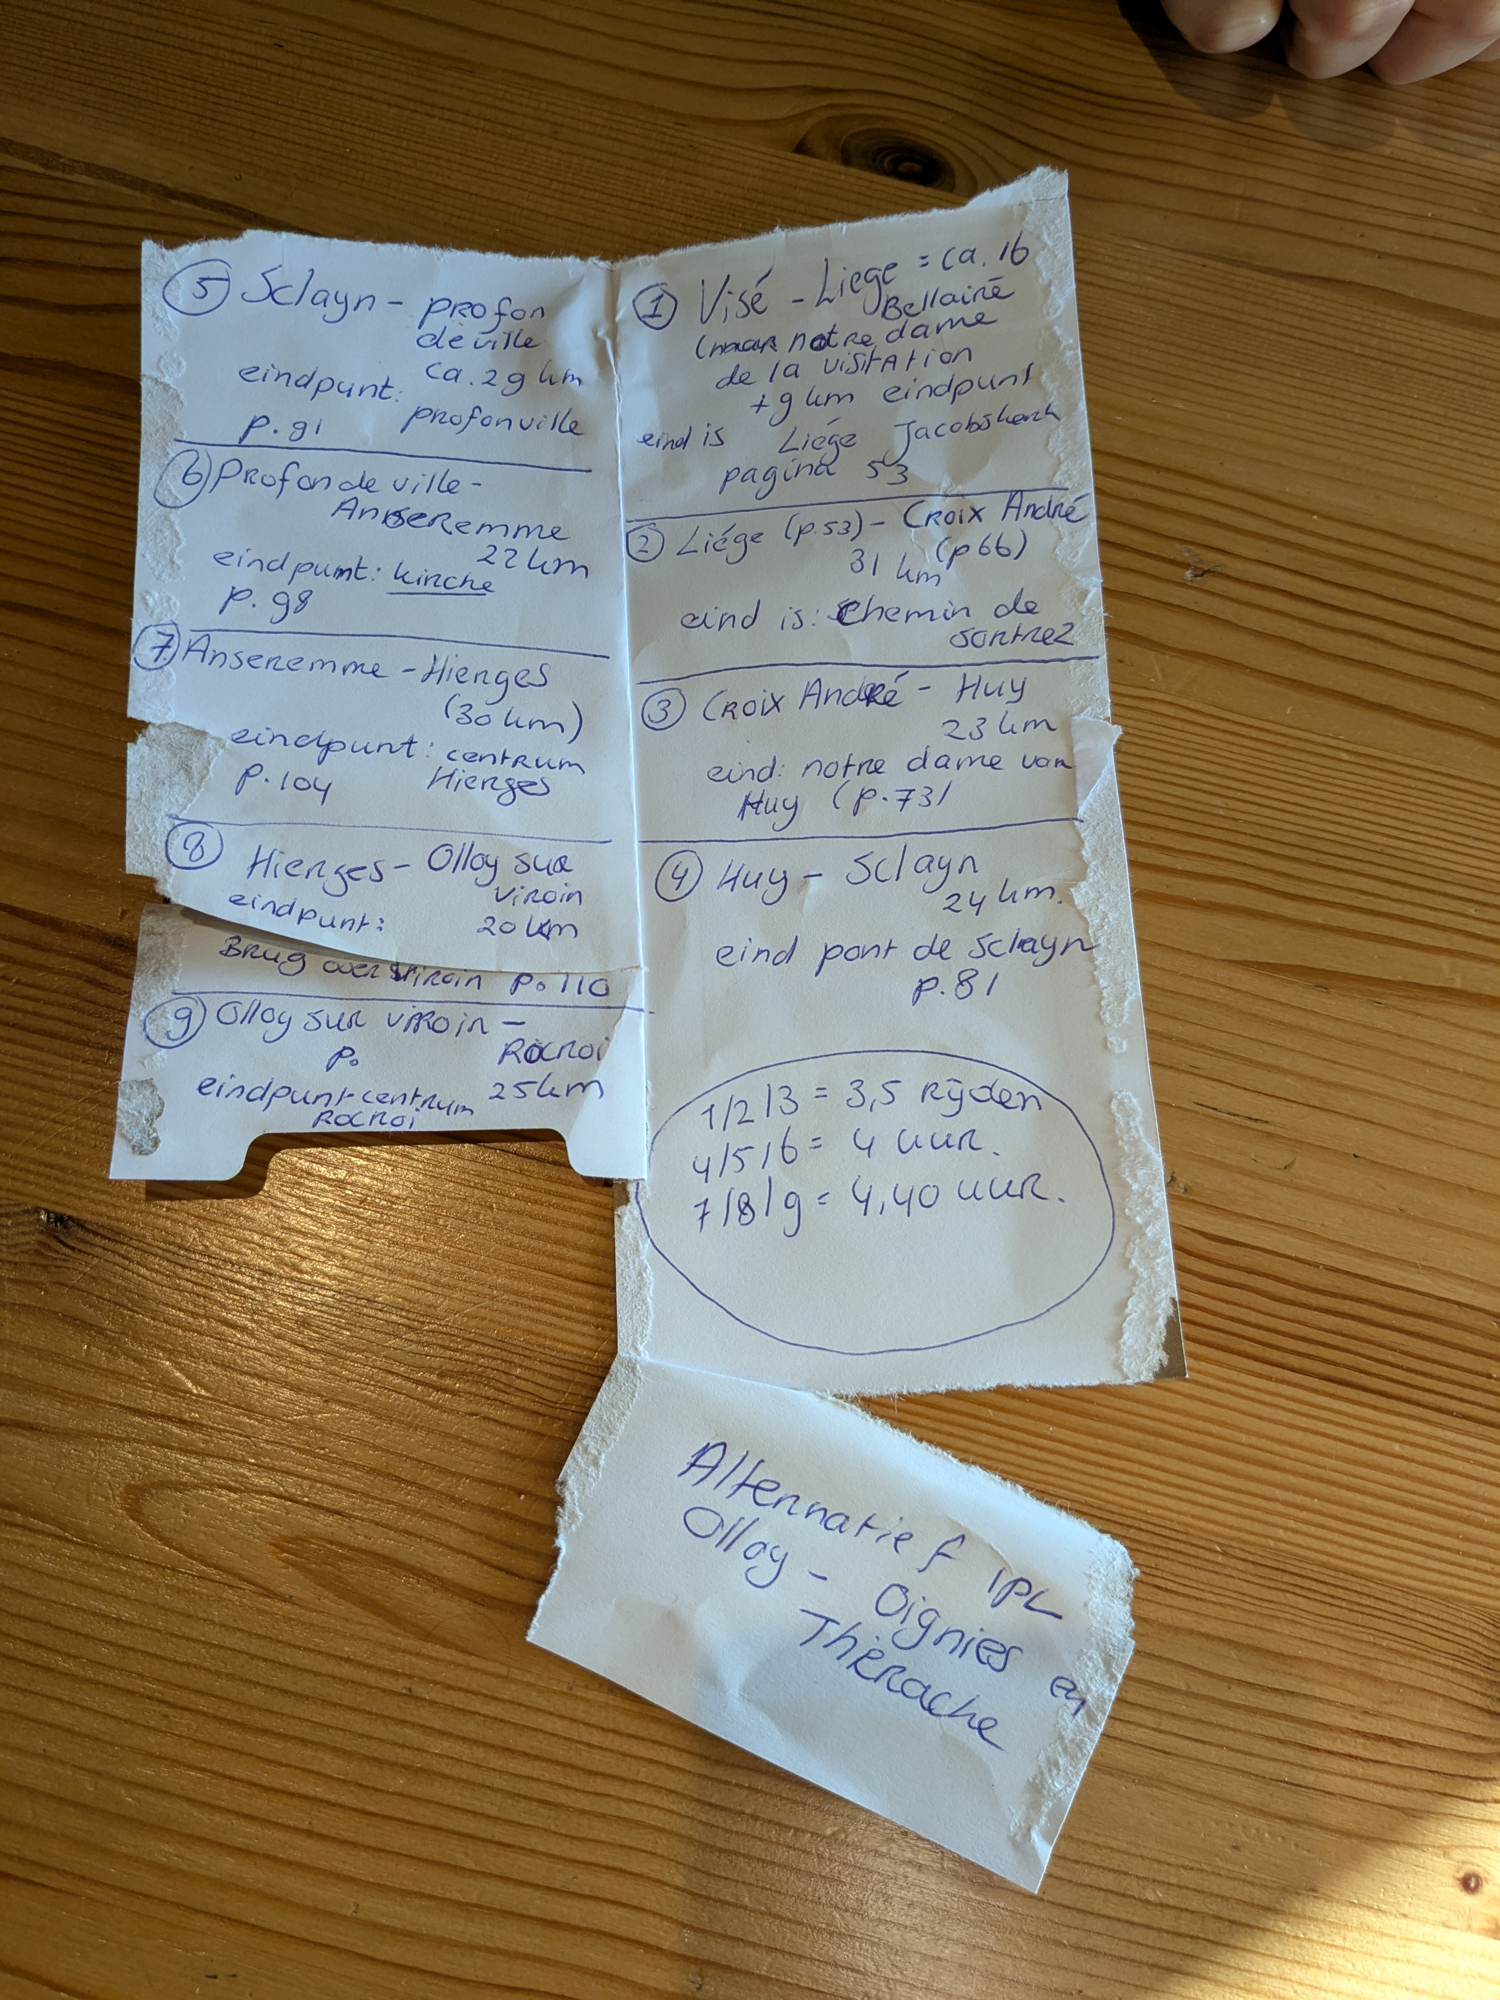 ① Visé - Liege = ca. 16
Bellairé
(naar notre dame
de la visitation
+ 9 km eindpunt
eind is Liége Jacobskerk
pagina 53
② Liége (p.53) - Croix André
31 km (p66)
eind is: Chemin de
Sartrez
③ Croix André - Huy
23 km
eind: notre dame van
Huy (p.73)
④ Huy - Sclayn
24 km.
eind pont de Sclayn
p.81
1/2/3 = 3,5 Rijden
4/5/6 = 4 uur.
7/8/9 = 4,40 uur.
⑤ Sclayn - profon
deville
ca. 29 km
eindpunt:
p.91 profonville
⑥ Profondeville -
Anseremme
22 km
eindpunt: kirche
p.98
⑦ Anseremme - Hierges
(30 km)
eindpunt: centrum
p.104 Hierges
⑧ Hierges - Olloy sur
Viroin
eindpunt: 20 km
Brug over Viroin p. 110
⑨ Olloy sur Viroin -
p. Rocroi
eindpunt centrum 25 km
Rocroi
Alternatief IPL
Olloy - Oignies en
Thierache